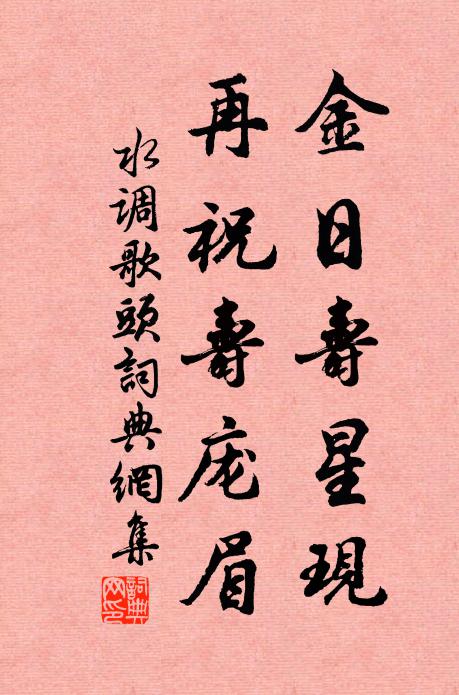 金日壽星現
再祝壽庞眉
水調歌頭詞典網集
詞典网印